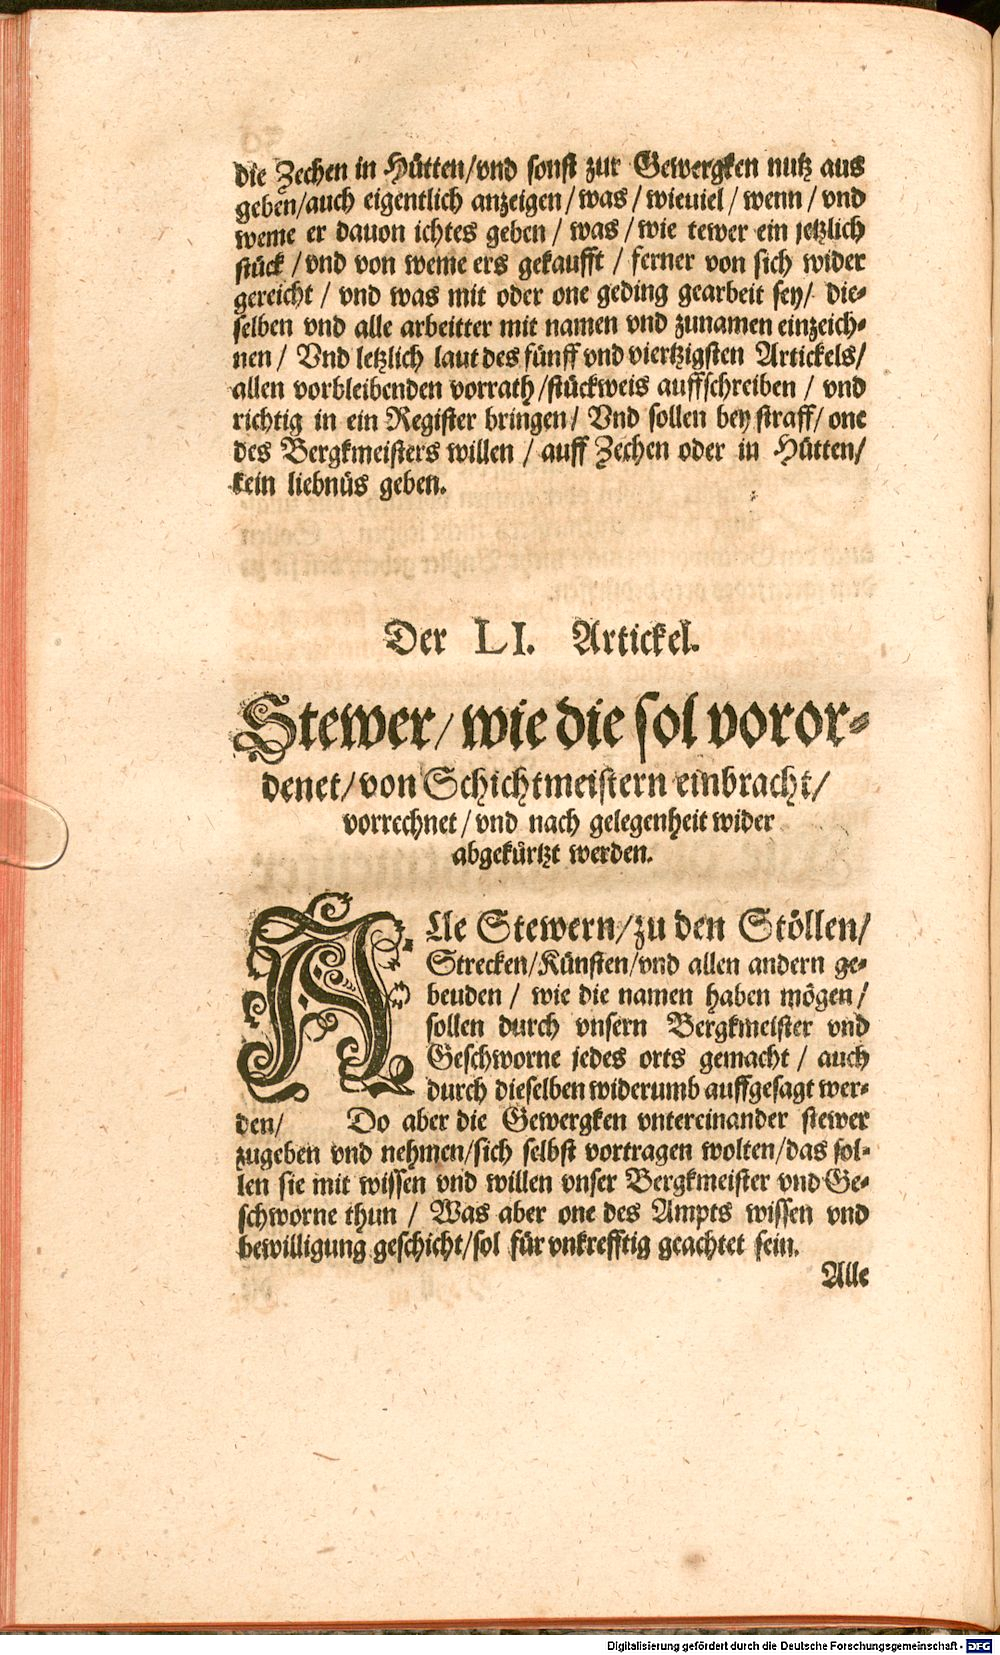 die Zechen in Hütten/vnd sonst zur Gewergken nutz aus
geben/auch eigentlich anzeigen/was/wieuiel/wenn/vnd
weme er dauon ichtes geben/was/wie tewer ein jetzlich
stück/vnd von weme ers gekaufft/ferner von sich wider
gereicht/vnd was mit oder one geding gearbeit sey/die-
selben vnd alle arbeitter mit namen vnd zunamen einzeich-
nen/Vnd letzlich laut des fünff vnd viertzigsten Artickels/
allen vorbleibenden vorrath/stückweis auffschreiben/vnd
richtig in ein Register bringen/Vnd sollen bey straff/one
des Bergkmeisters willen/auff Zechen oder in Hütten/
kein liebnüs geben.
Der LI. Artickel.
Stewer/wie die sol voror-
denet/von Schichtmeistern einbracht/
vorrechnet/vnd nach gelegenheit wider
abgekürtzt werden.
ALle Stewern/zu den Stöllen/
Strecken/Künsten/vnd allen andern ge-
beuden/wie die namen haben mögen/
sollen durch vnsern Bergkmeister vnd
Geschworne jedes orts gemacht/auch
durch dieselben widerumb auffgesagt wer-
den/ Do aber die Gewergken vntereinander stewer
zugeben vnd nehmen/sich selbst vortragen wolten/das sol-
len sie mit wissen vnd willen vnser Bergkmeister vnd Ge-
schworne thun/Was aber one des Ampts wissen vnd
bewilligung geschicht/sol für vnkrefftig geachtet sein.
Alle
Digitalisierung gefördert durch die Deutsche Forschungsgemeinschaft - DFG